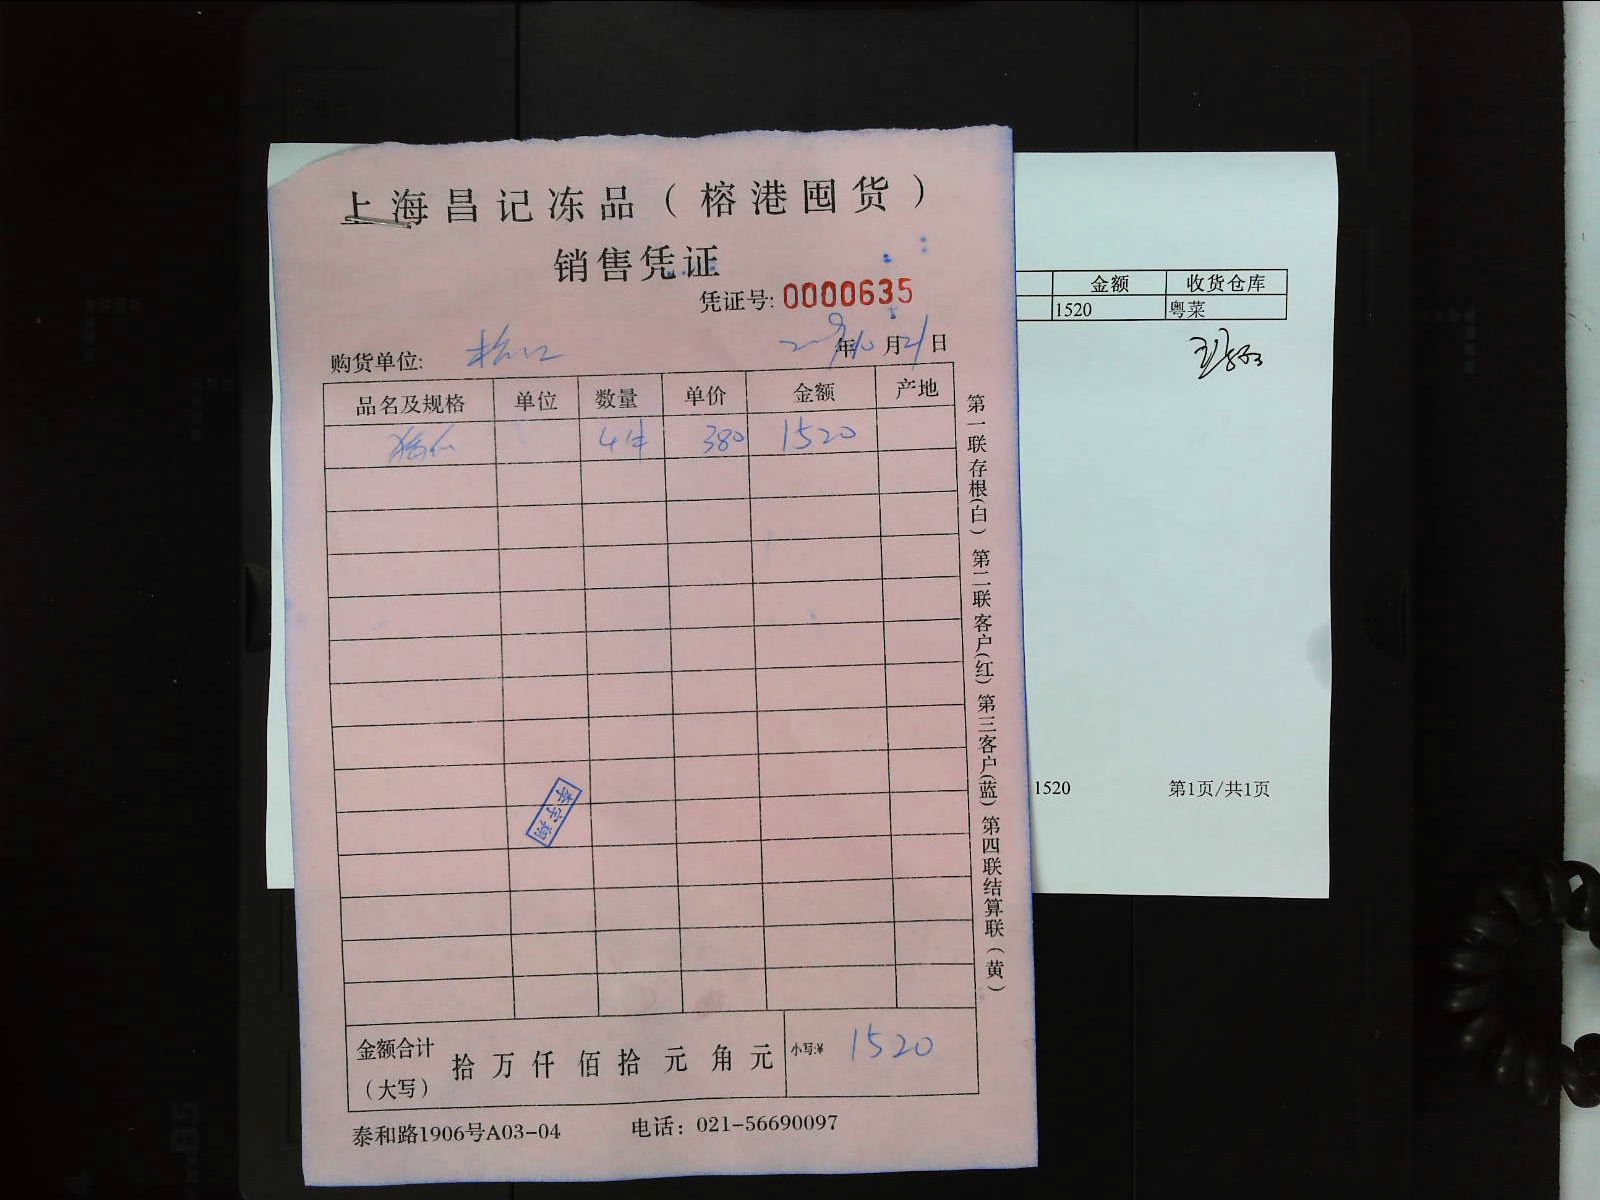 上海昌记冻品（榕港囤货）
销售凭证
凭证号: 0000635
购货单位: 年10月21日
品名及规格 单位 数量 单价 金额 产地
4件 380 1520
金额合计（大写） 拾 万 仟 佰 拾 元 角 元 小写:¥ 1520
泰和路1906号A03-04 电话：021-56690097
第一联存根(白) 第二联客户(红) 第三客户(蓝) 第四联结算联(黄)
李宇翔
金额 收货仓库
1520 粤菜
1520 第1页/共1页